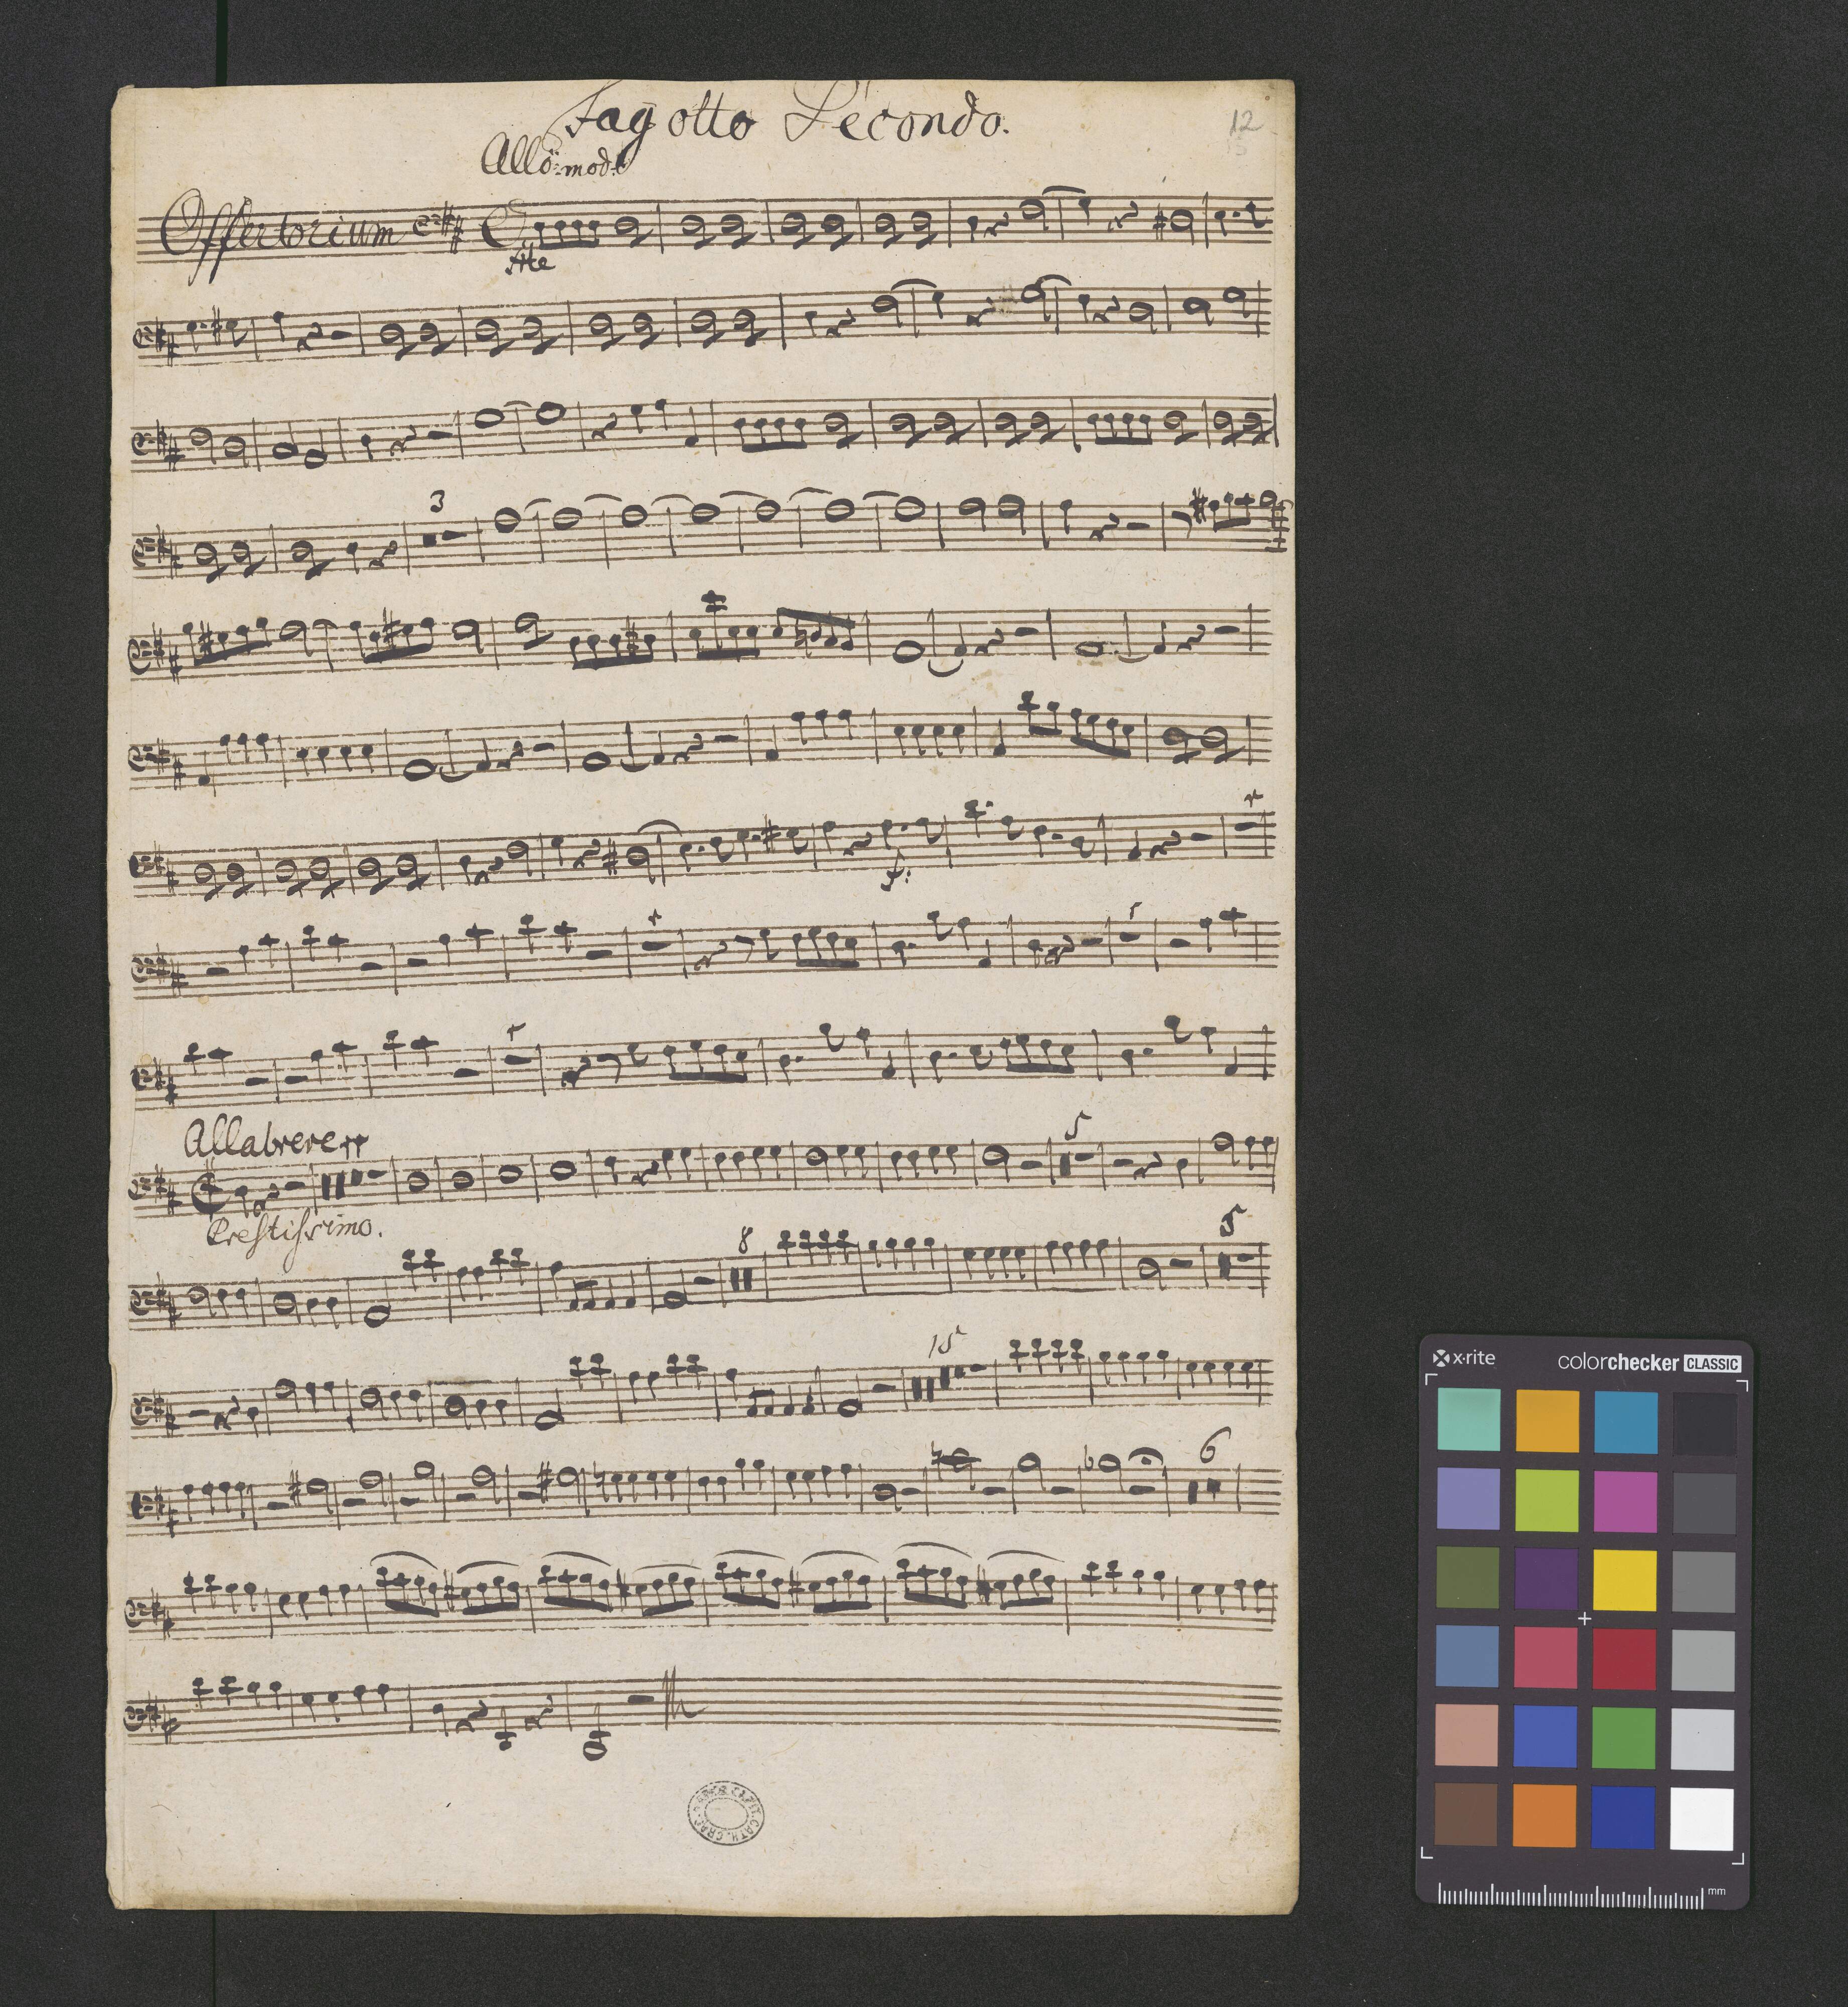 Fagotto Secondo.
12
Allo: mod:
Offertorium
3
f:
Allabreve
5
Prestissimo.
8
5
15
6
x-rite
colorchecker CLASSIC
mm